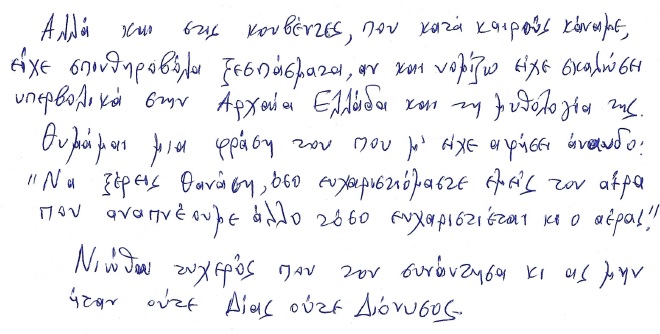 Αλλά και στις κουβέντες, που κατά καιρούς κάναμε,
είχε σπινθηροβόλα ξεσπάσματα, αν και νομίζω είχε σκαλώσει
υπερβολικά στην Αρχαία Ελλάδα και τη μυθολογία της.
Θυμάμαι μια φράση του που μ' είχε αφήσει άναυδο:
"Να ξέρεις Θανάση, όσο ευχαριστιόμαστε εμείς τον αέρα
που αναπνέουμε άλλο τόσο ευχαριστιέται κι ο αέρας!"
Νιώθω τυχερός που τον συνάντησα κι ας μην
ήταν ούτε Δίας ούτε Διόνυσος.